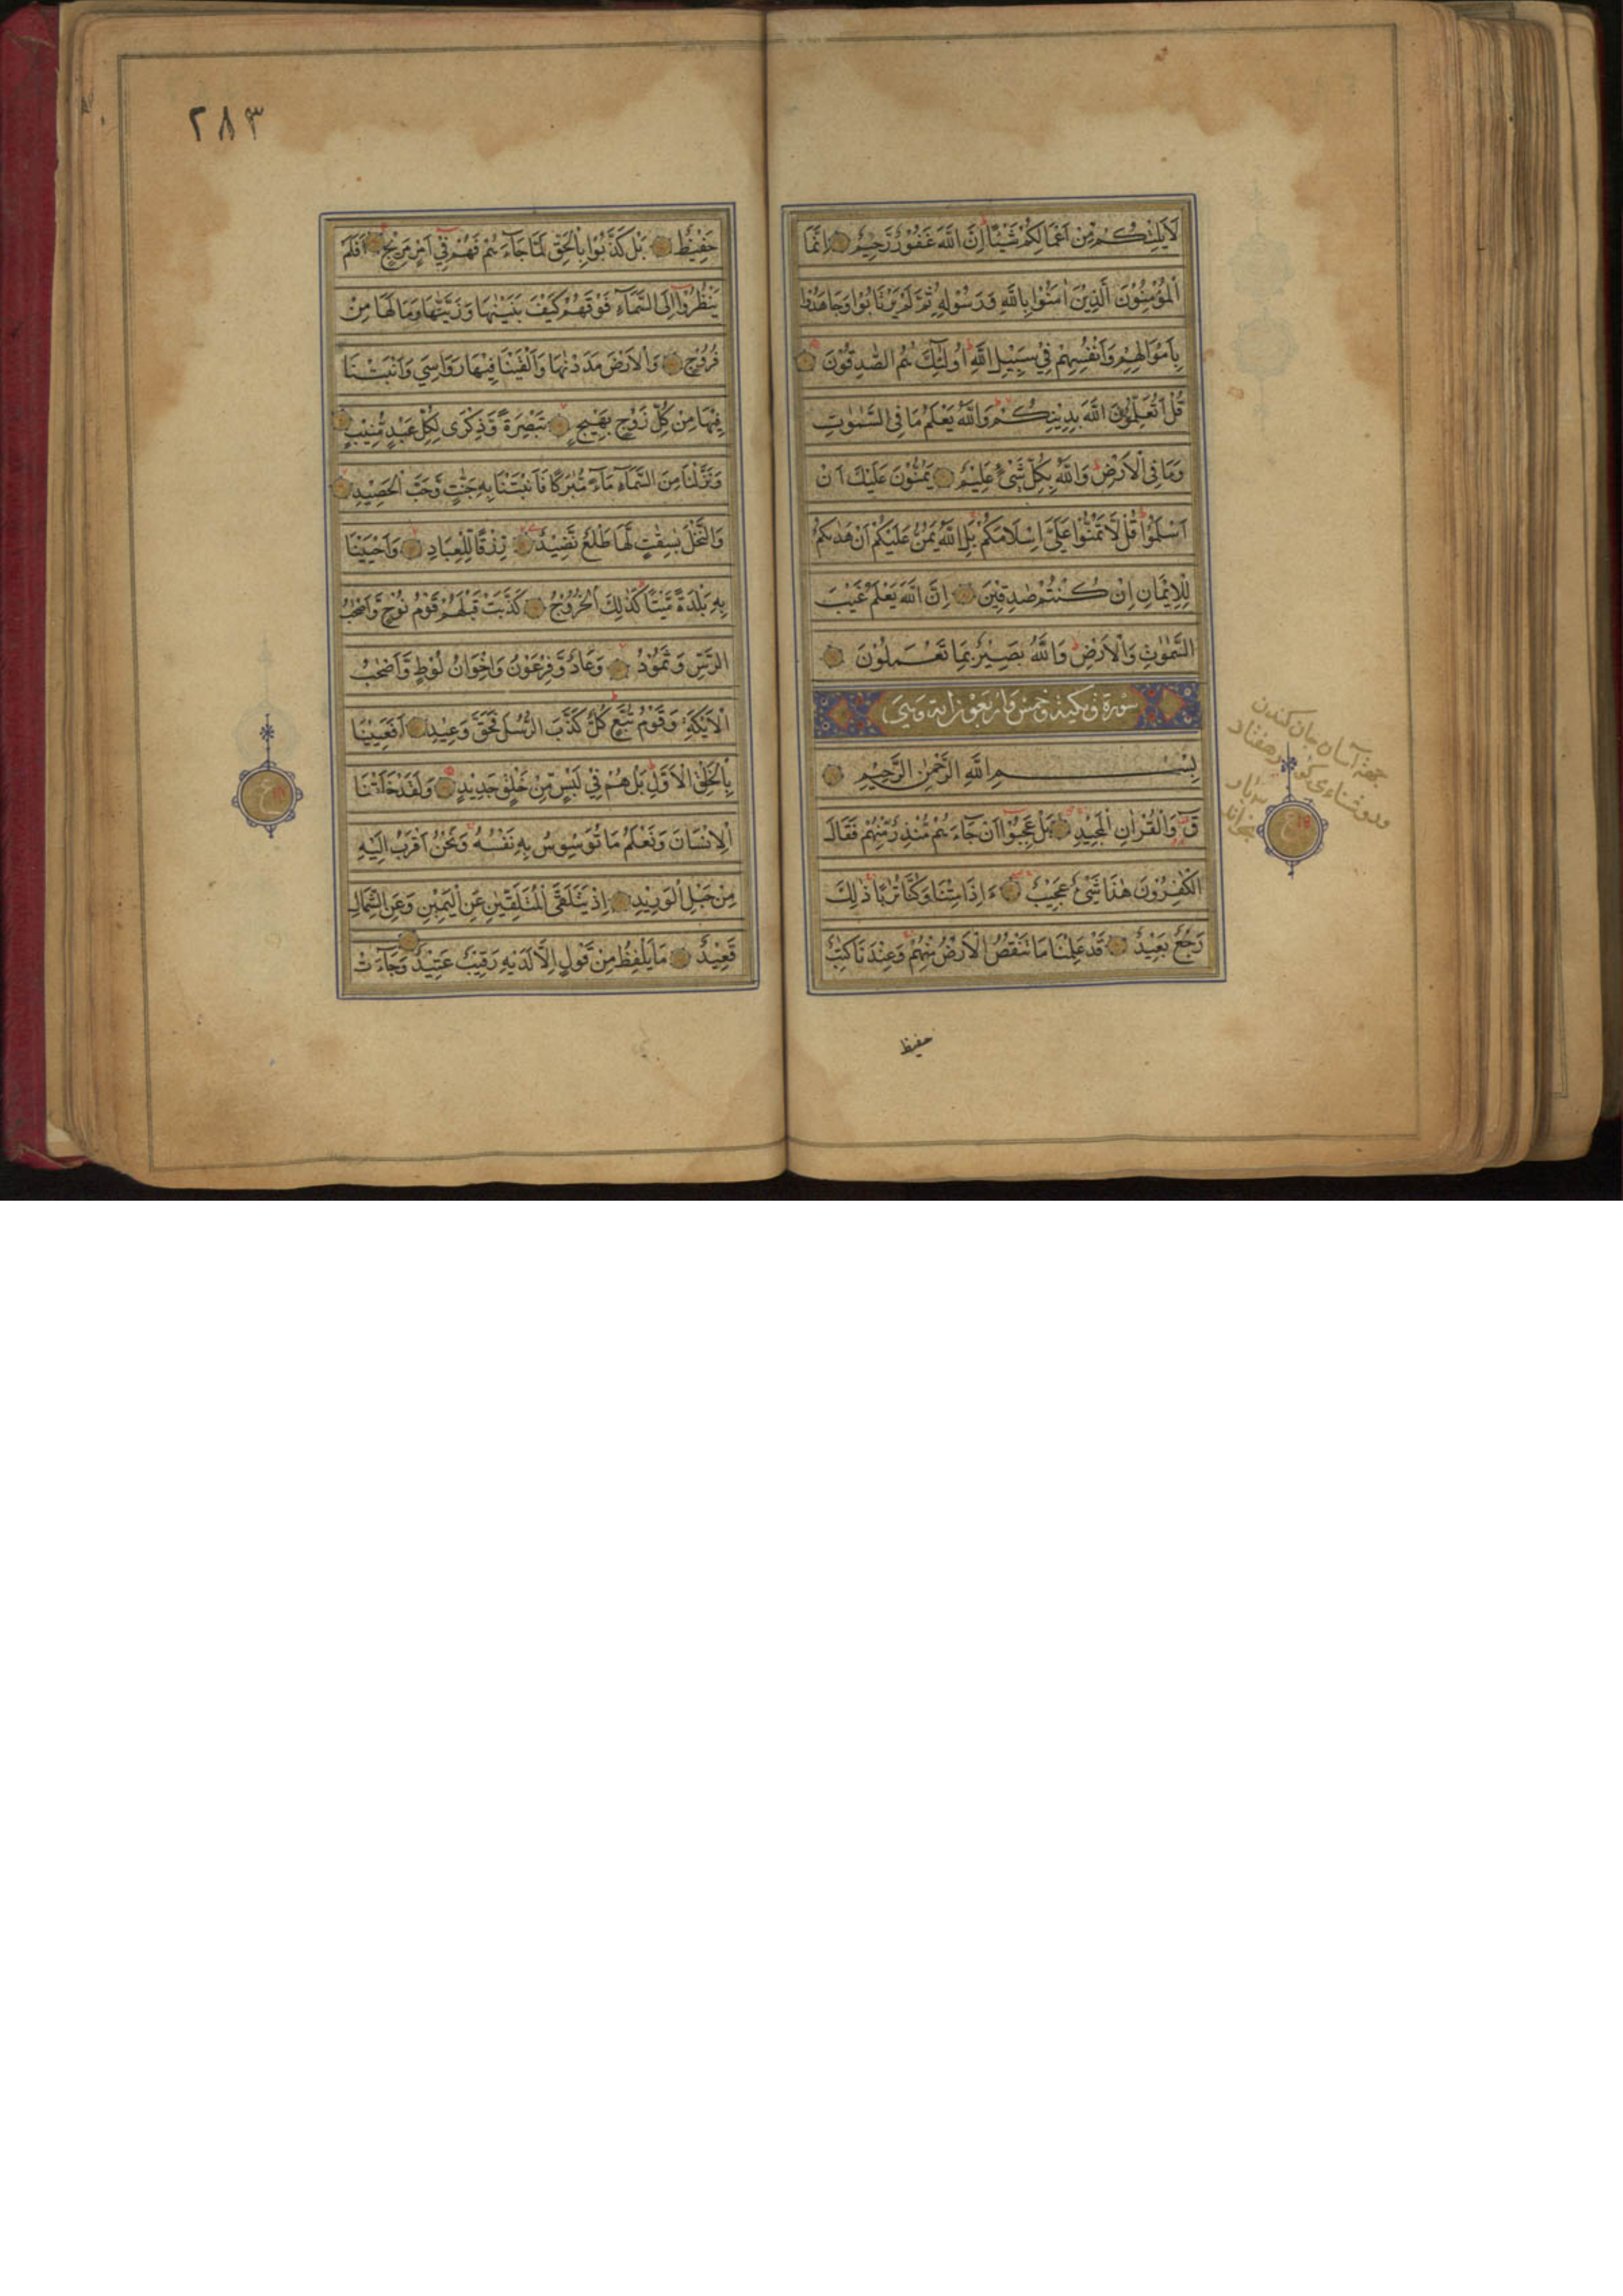 لَا يَلِتْكُمْ مِّنْ اَعْمَالِكُمْ شَيْئًا اِنَّ اللّٰهَ غَفُوْرٌ رَّحِيْمٌ اِنَّمَا
الْمُؤْمِنُوْنَ الَّذِيْنَ اٰمَنُوْا بِاللّٰهِ وَرَسُوْلِهٖ ثُمَّ لَمْ يَرْتَابُوْا وَجَاهَدُوْا
بِاَمْوَالِهِمْ وَاَنْفُسِهِمْ فِيْ سَبِيْلِ اللّٰهِ اُولٰٓئِكَ هُمُ الصّٰدِقُوْنَ
قُلْ اَتُعَلِّمُوْنَ اللّٰهَ بِدِيْنِكُمْ وَاللّٰهُ يَعْلَمُ مَا فِى السَّمٰوٰتِ
وَمَا فِى الْاَرْضِ وَاللّٰهُ بِكُلِّ شَيْءٍ عَلِيْمٌ يَمُنُّوْنَ عَلَيْكَ اَنْ
اَسْلَمُوْا قُلْ لَّا تَمُنُّوْا عَلَيَّ اِسْلَامَكُمْ بَلِ اللّٰهُ يَمُنُّ عَلَيْكُمْ اَنْ هَدٰىكُمْ
لِلْاِيْمَانِ اِنْ كُنْتُمْ صٰدِقِيْنَ اِنَّ اللّٰهَ يَعْلَمُ غَيْبَ
السَّمٰوٰتِ وَالْاَرْضِ وَاللّٰهُ بَصِيْرٌ بِمَا تَعْمَلُوْنَ
سورة ق مكية وخمس واربعون اية وهي
بِسْمِ اللّٰهِ الرَّحْمٰنِ الرَّحِيْمِ
قٓ وَالْقُرْاٰنِ الْمَجِيْدِ بَلْ عَجِبُوْا اَنْ جَاءَهُمْ مُّنْذِرٌ مِّنْهُمْ فَقَالَ
الْكٰفِرُوْنَ هٰذَا شَيْءٌ عَجِيْبٌ ءَاِذَا مِتْنَا وَكُنَّا تُرَابًا ذٰلِكَ
رَجْعٌ بَعِيْدٌ قَدْ عَلِمْنَا مَا تَنْقُصُ الْاَرْضُ مِنْهُمْ وَعِنْدَنَا كِتٰبٌ
حفيظ
جهة آسان جان كندن
وروشنائى كور هفتاد
بار
بخواند
ع
٢٨٣
حَفِيْظٌ بَلْ كَذَّبُوْا بِالْحَقِّ لَمَّا جَآءَهُمْ فَهُمْ فِيْ اَمْرٍ مَّرِيْجٍ اَفَلَمْ
يَنْظُرُوْا اِلَى السَّمَآءِ فَوْقَهُمْ كَيْفَ بَنَيْنٰهَا وَزَيَّنّٰهَا وَمَا لَهَا مِنْ
فُرُوْجٍ وَالْاَرْضَ مَدَدْنٰهَا وَاَلْقَيْنَا فِيْهَا رَوَاسِيَ وَاَنْبَتْنَا
فِيْهَا مِنْ كُلِّ زَوْجٍ بَهِيْجٍ تَبْصِرَةً وَّذِكْرٰى لِكُلِّ عَبْدٍ مُّنِيْبٍ
وَنَزَّلْنَا مِنَ السَّمَآءِ مَآءً مُّبٰرَكًا فَاَنْبَتْنَا بِهٖ جَنّٰتٍ وَّحَبَّ الْحَصِيْدِ
وَالنَّخْلَ بٰسِقٰتٍ لَّهَا طَلْعٌ نَّضِيْدٌ رِّزْقًا لِّلْعِبَادِ وَاَحْيَيْنَا
بِهٖ بَلْدَةً مَّيْتًا كَذٰلِكَ الْخُرُوْجُ كَذَّبَتْ قَبْلَهُمْ قَوْمُ نُوْحٍ وَّاَصْحٰبُ
الرَّسِّ وَثَمُوْدُ وَعَادٌ وَّفِرْعَوْنُ وَاِخْوَانُ لُوْطٍ وَّاَصْحٰبُ
الْاَيْكَةِ وَقَوْمُ تُبَّعٍ كُلٌّ كَذَّبَ الرُّسُلَ فَحَقَّ وَعِيْدِ اَفَعَيِيْنَا
بِالْخَلْقِ الْاَوَّلِ بَلْ هُمْ فِيْ لَبْسٍ مِّنْ خَلْقٍ جَدِيْدٍ وَلَقَدْ خَلَقْنَا
الْاِنْسَانَ وَنَعْلَمُ مَا تُوَسْوِسُ بِهٖ نَفْسُهٗ وَنَحْنُ اَقْرَبُ اِلَيْهِ
مِنْ حَبْلِ الْوَرِيْدِ اِذْ يَتَلَقَّى الْمُتَلَقِّيٰنِ عَنِ الْيَمِيْنِ وَعَنِ الشِّمَالِ
قَعِيْدٌ مَا يَلْفِظُ مِنْ قَوْلٍ اِلَّا لَدَيْهِ رَقِيْبٌ عَتِيْدٌ وَجَآءَتْ
ع